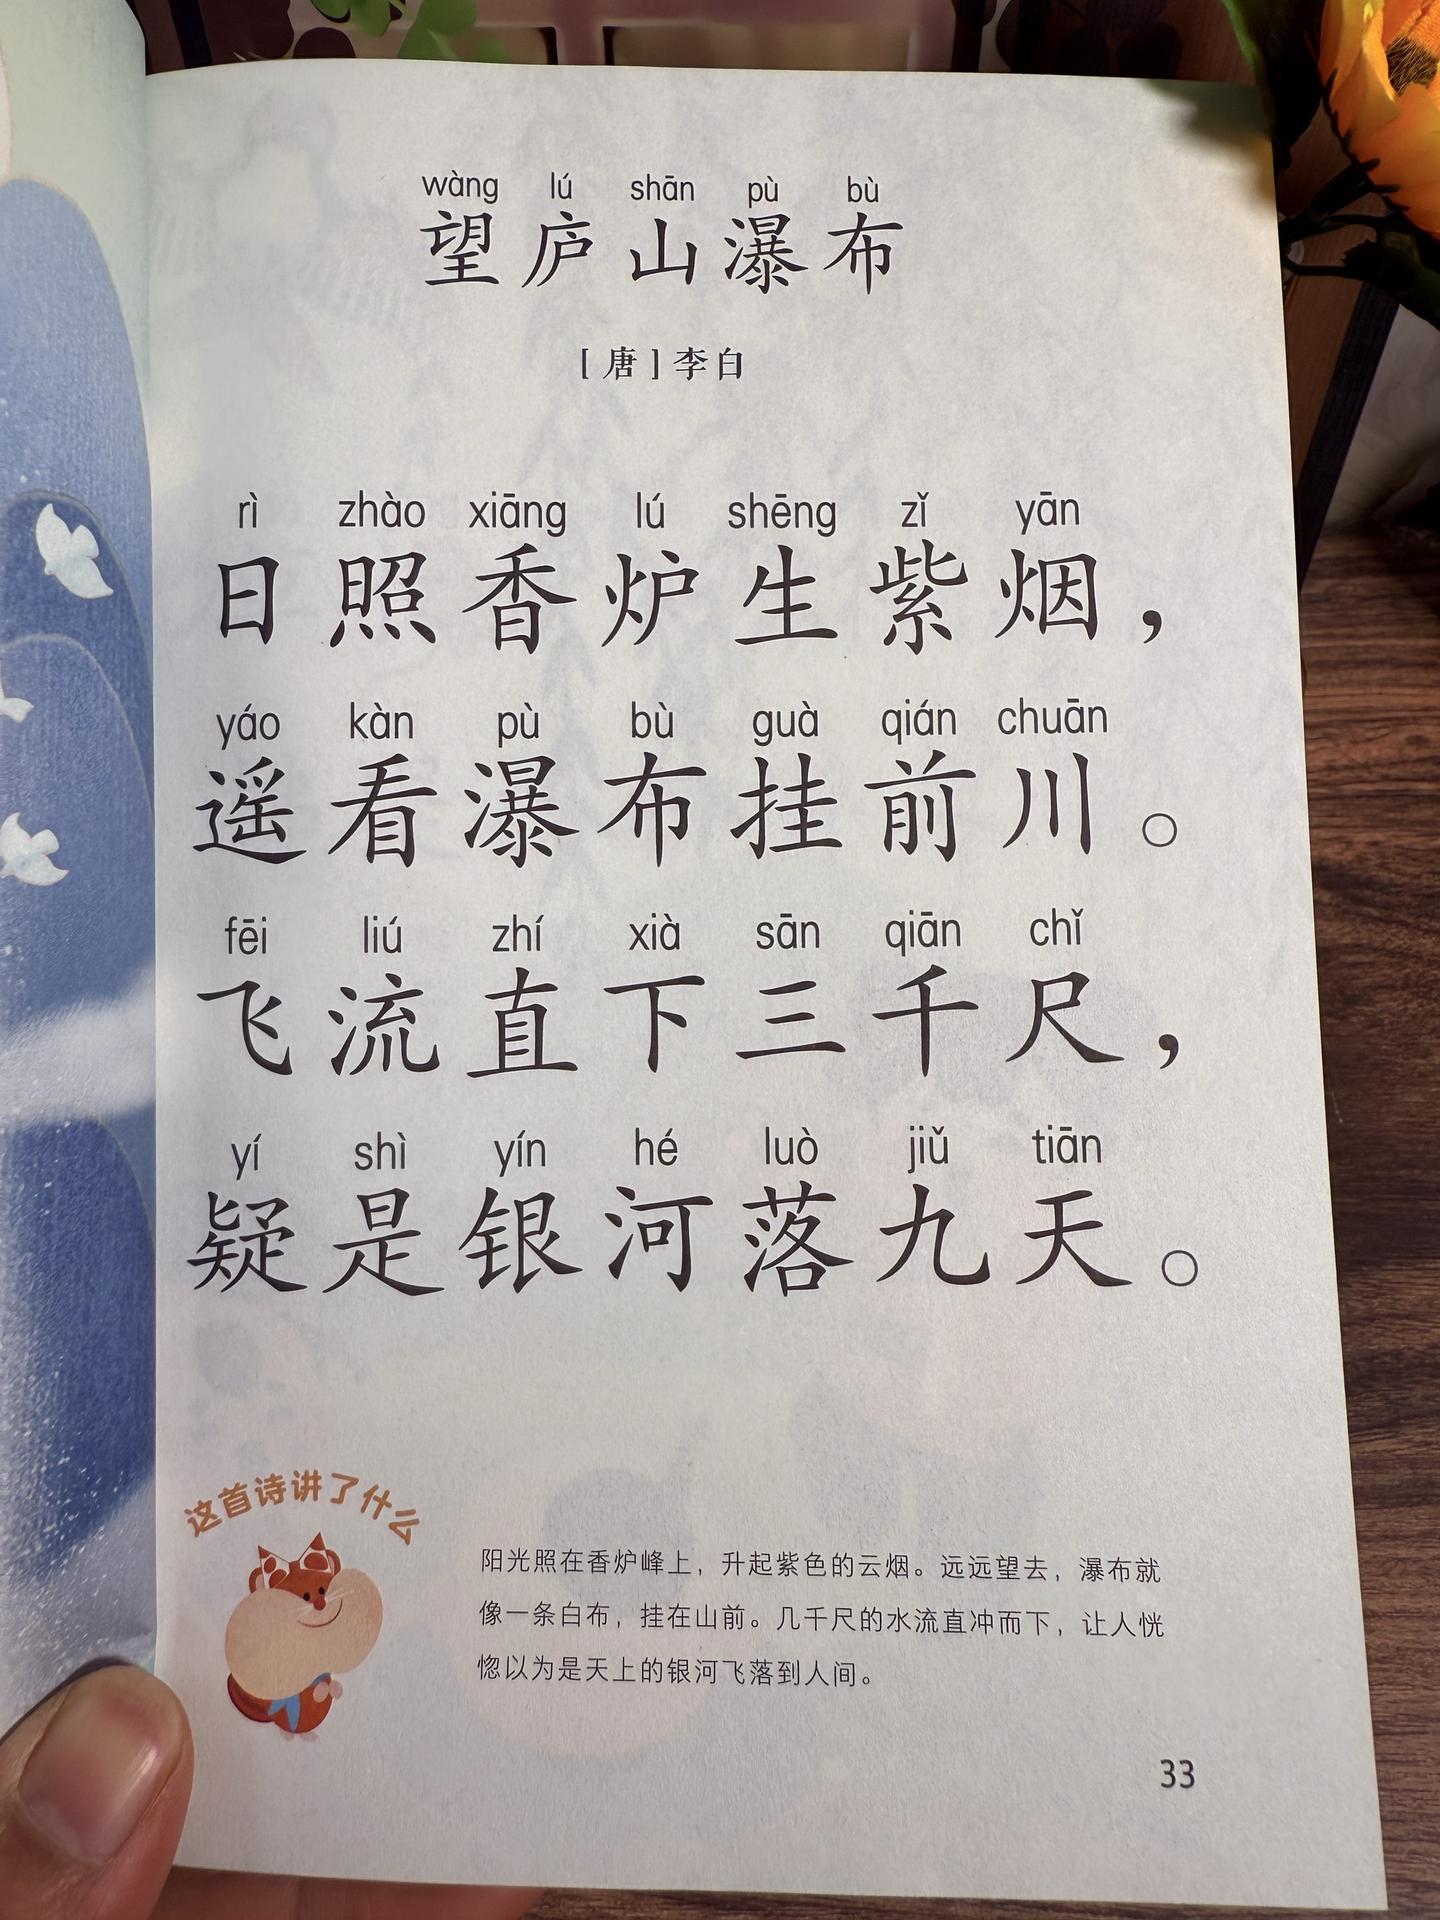 wàng lú shān pù bù
望庐山瀑布
[唐]李白
rì zhào xiāng lú shēng zǐ yān
日照香炉生紫烟，
yáo kàn pù bù guà qián chuān
遥看瀑布挂前川。
fēi liú zhí xià sān qiān chǐ
飞流直下三千尺，
yí shì yín hé luò jiǔ tiān
疑是银河落九天。
这首诗讲了什么
阳光照在香炉峰上，升起紫色的云烟。远远望去，瀑布就
像一条白布，挂在山前。几千尺的水流直冲而下，让人恍
惚以为是天上的银河飞落到人间。
33